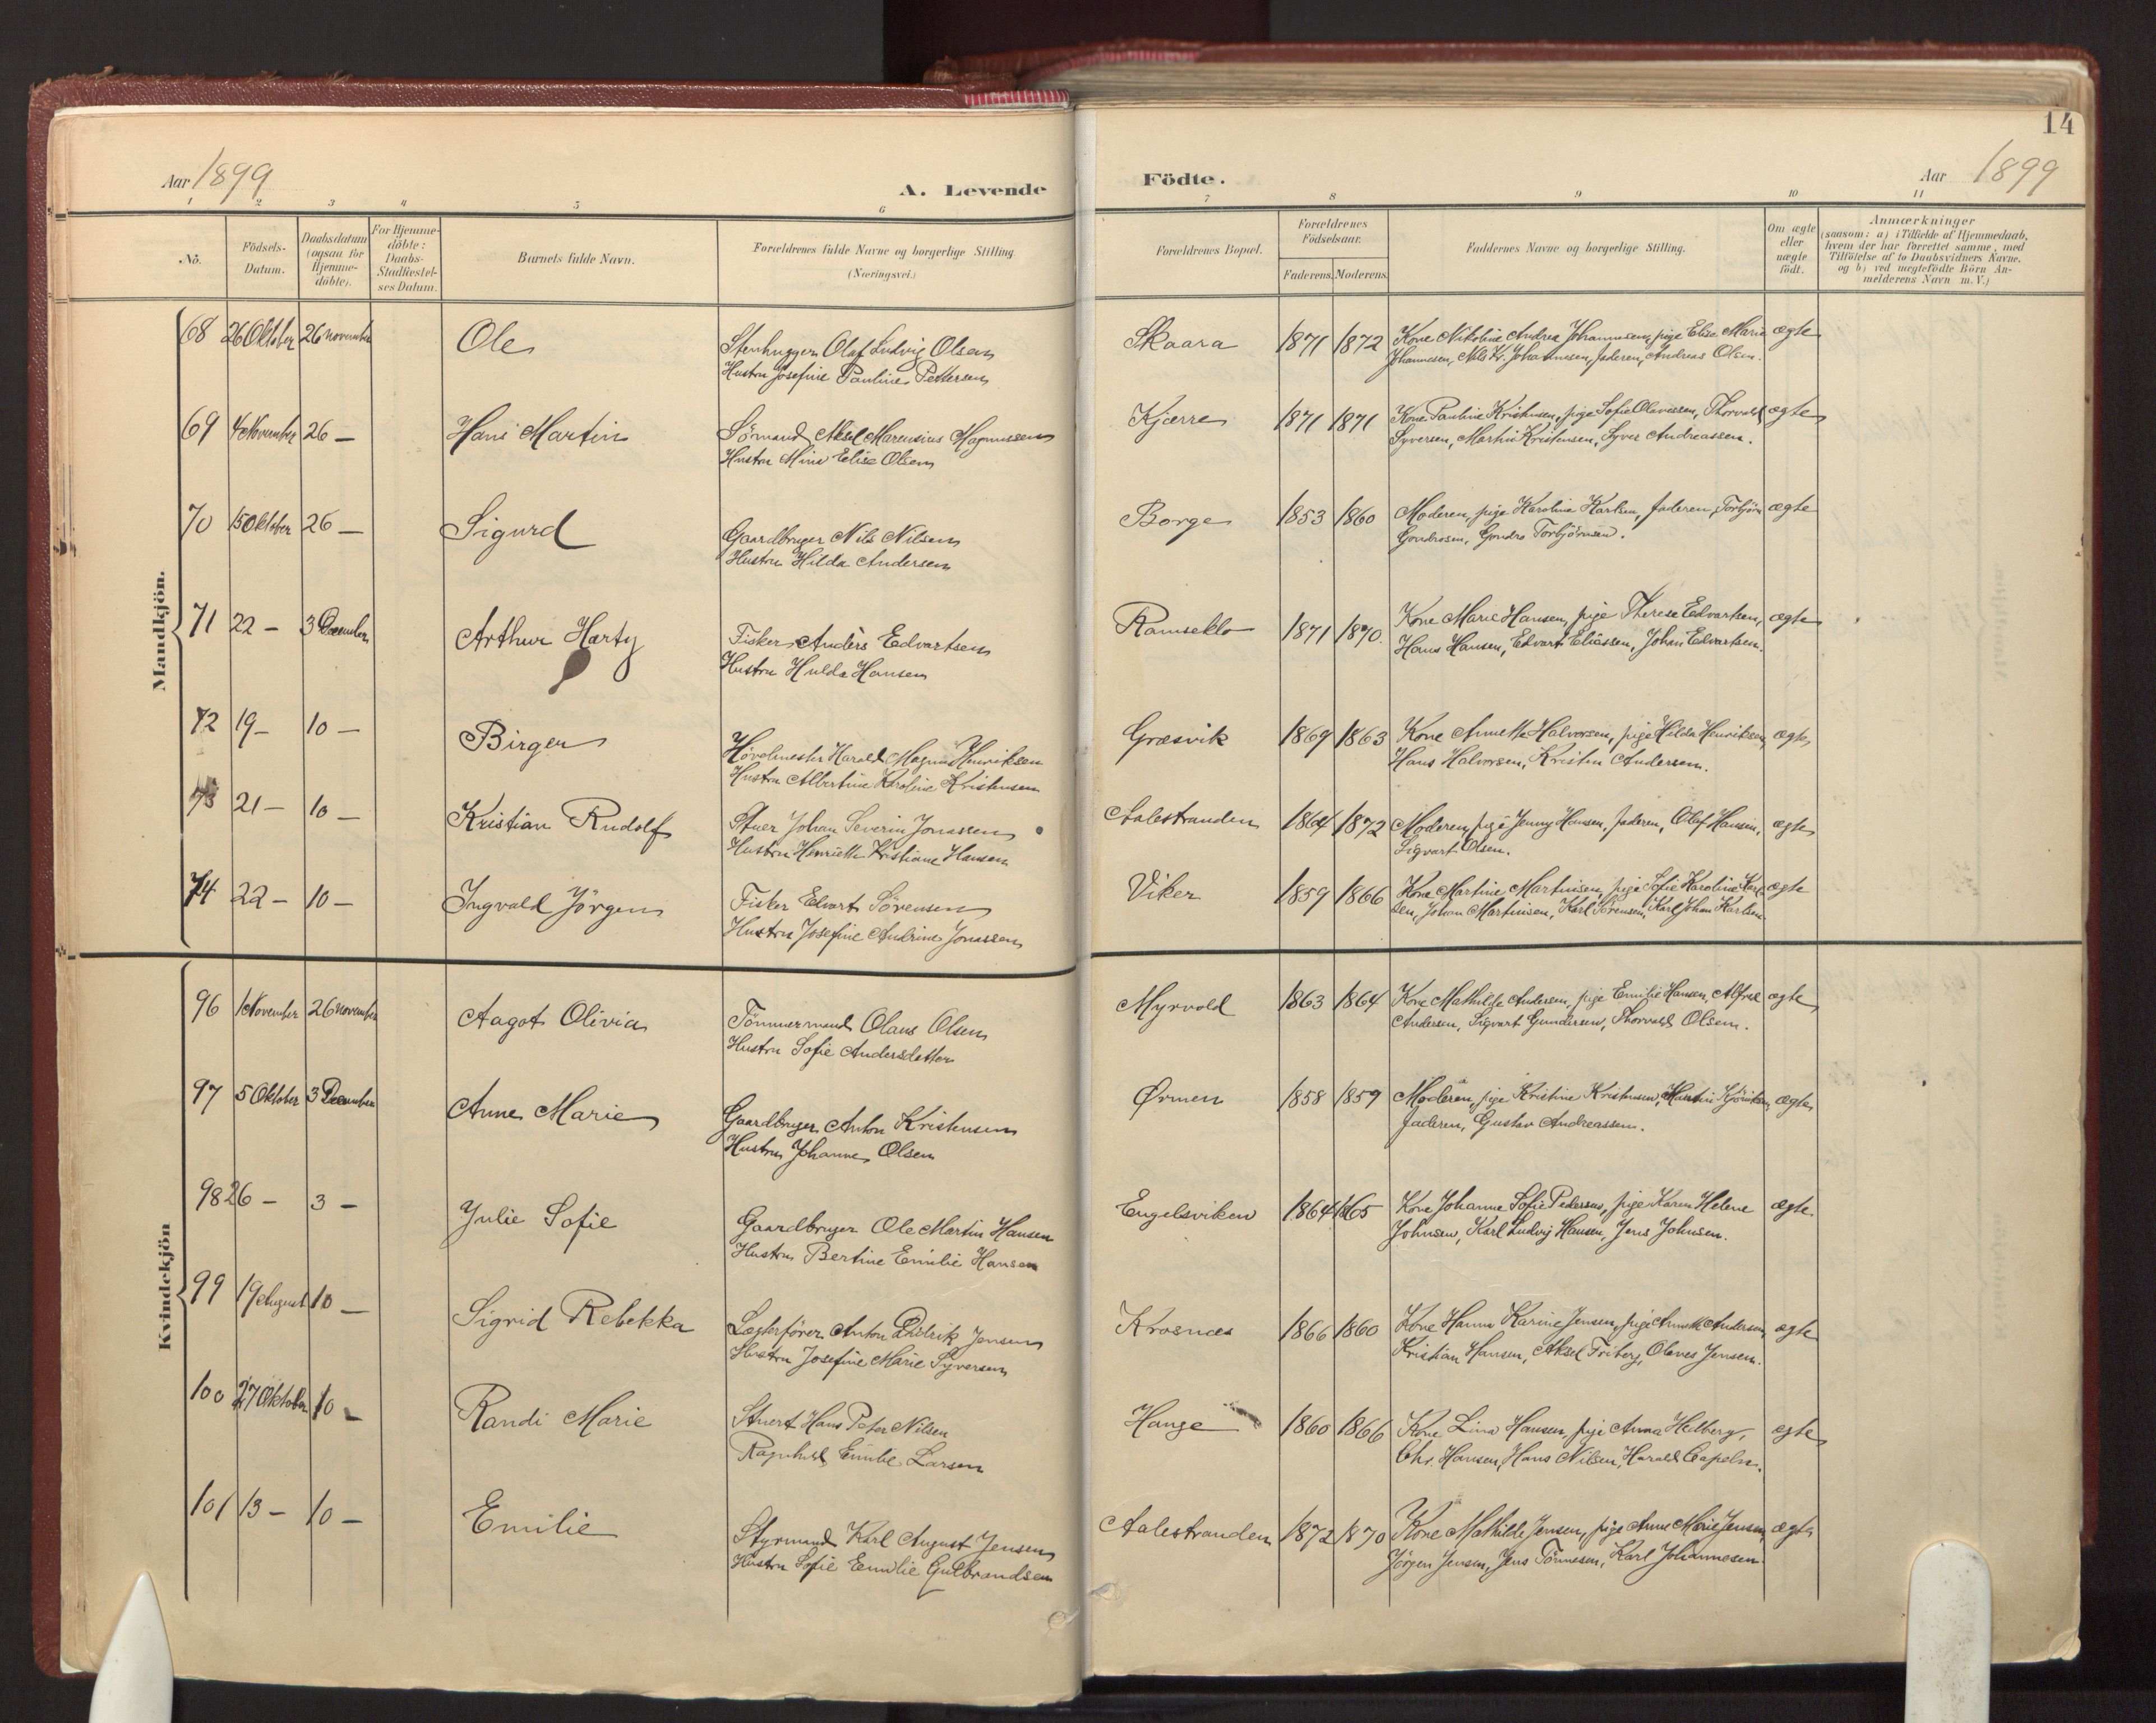 14
Aar 1899
A. Levende
Födte.
Aar 1899
1 2 3 4 5 6 7 8 9 10 11
No.
Födsels-Datum.
Daabsdatum (ogsaa for Hjemme-döbte).
For Hjemme-döbte: Daabs-Stadfæstel-ses Datum.
Barnets fulde Navn.
Forældrenes fulde Navne og borgerlige Stilling.
(Næringsvei.)
Forældrenes Bopæl.
Forældrenes Födselsaar.
Faderens. Moderens.
Faddernes Navne og borgerlige Stilling.
Om ægte eller uægte födt.
Anmærkninger
(saasom: a) i Tilfælde af Hjemmedaab,
hvem der har forrettet samme, med
Tilföielse af to Daabsvidners Navne,
og b) ved uægtefödte Börn An-
melderens Navn m. V.)
Mandkjön.
68 26 Oktober 26 november Ole Stenhugger Olaf Ludvig Olsen Skaara 1871 1872 Kone Nikoline Andrea Johannesen, pige Elise Marie ægte
Hustru Josefine Pauline Pettersen Johannesen, Nils Kr. Johannesen, faderen, Andreas Olsen.
69 4 November 26 — Hans Martin Sömand Aksel Marensius Magnussen Kjærre 1871 1871 Kone Pauline Kristensen, pige Sofie Olavessen, Thorvald ægte
Hustru Mina Elise Olsen Syversen, Martin Kristensen, Syver Andreassen.
70 15 Oktober 26 — Sigurd Gaardbruger Nils Nilsen Borge 1853 1860 Moderen, pige Karoline Karlsen, faderen, Torbjörn ægte
Hustru Hilda Andersen Gundrosen, Torbjörnsen.
71 22 — 3 December Arthur Harty Fisker Anders Edvartsen Ramseklo 1871 1870. Kone Marie Hansen, pige Therese Edvartsen, ægte
Hustru Hulda Hansen Hans Hansen, Edvart Eliassen, Johan Edvartsen.
72 19 — 10 — Birger Hövelmester Harald Magnus Henriksen Græsvik 1869 1863 Kone Annette Halvorsen, pige Hilda Henriksen, ægte
Hustru Albertine Karoline Kristensen Hans Halvorsen, Kristen Andersen.
73 21 — 10 — Kristian Rudolf Stuer Johan Severin Jonassen Aalestranden 1864 1872 Moderen, pige Jenny Hansen, faderen, Olaf Hansen, ægte
Hustru Henriette Kristiane Hansen Sigvart Olsen.
74 22 — 10 — Ingvald Jörgen Fisker Edvart Sörensen Viker 1859 1866 Kone Martine Martinsen, pige Sofie Karoline Karl- ægte
Hustru Josefine Andrine Jonassen sen, Johan Martinsen, Karl Sörensen, Karl Johan Karlsen.
Kvindekjön
96 1 November 26 november Aagot Olivia Tömmermand Olaus Olsen Myrvold 1863 1864 Kone Mathilde Andersen, pige Emilie Hansen, Alfred ægte
Hustru Sofie Andersdatter Andersen, Sigvart Gundersen, Thorvald Olsen.
97 5 Oktober 3 December Anne Marie Gaardbruger Anton Kristensen Ørmen 1858 1859 Moderen, pige Kristine Kristensen, Martin ægte
Hustru Johanne Olsen faderen, Gustav Andreassen.
98 26 — 3 — Julie Sofie Gaardbruger Ole Martin Hansen Engelsviken 1864 1865 Kone Johanne Sofie Pedersen, pige Karen Helene ægte.
Hustru Bertine Emilie Hansen Johnsen, Karl Ludvig Hansen, Jens Johnsen.
99 19 August 10 — Sigrid Rebekka Lægterförer Anton Didrik Jensen Krosnæs 1866 1860 Kone Hanna Karine Jensen, pige Annette Andersen, ægte
Hustru Josefine Marie Syversen Kristian Hansen, Aksel Friberg, Olaves Jensen.
100 27 Oktober 10 — Randi Marie Stuert Hans Peter Nilsen Hauge 1860 1866 Kone Lina Hansen, pige Anna Helberg, ægte
Ragnhild Emilie Larsen Chr. Hansen, Hans Nilsen, Harald Capelen.
101 13 — 10 — Emilie Styrmand Karl August Jensen Aalestranden 1872 1870 Kone Mathilde Jensen, pige Anne Marie Jensen, ægte
Hustru Sofie Emilie Gulbrandsen Jörgen Jensen, Jens Tönnesen, Karl Johannesen.